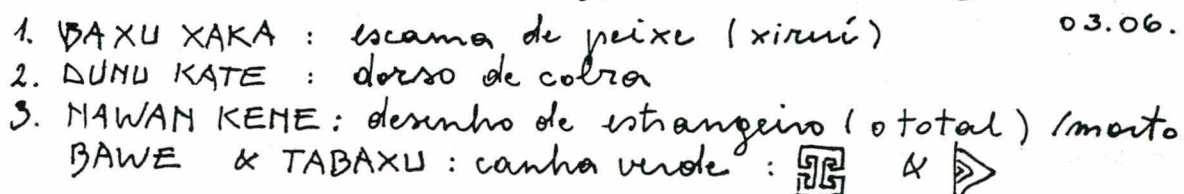 1. BAXU XAKA : escama de peixe (xiruí) 03.06.
2. DUNU KATE : dorso de cobra
3. NAWAN KENE: desenho de estrangeiro (o total) /morto
BAWE & TABAXU : canha verde : &